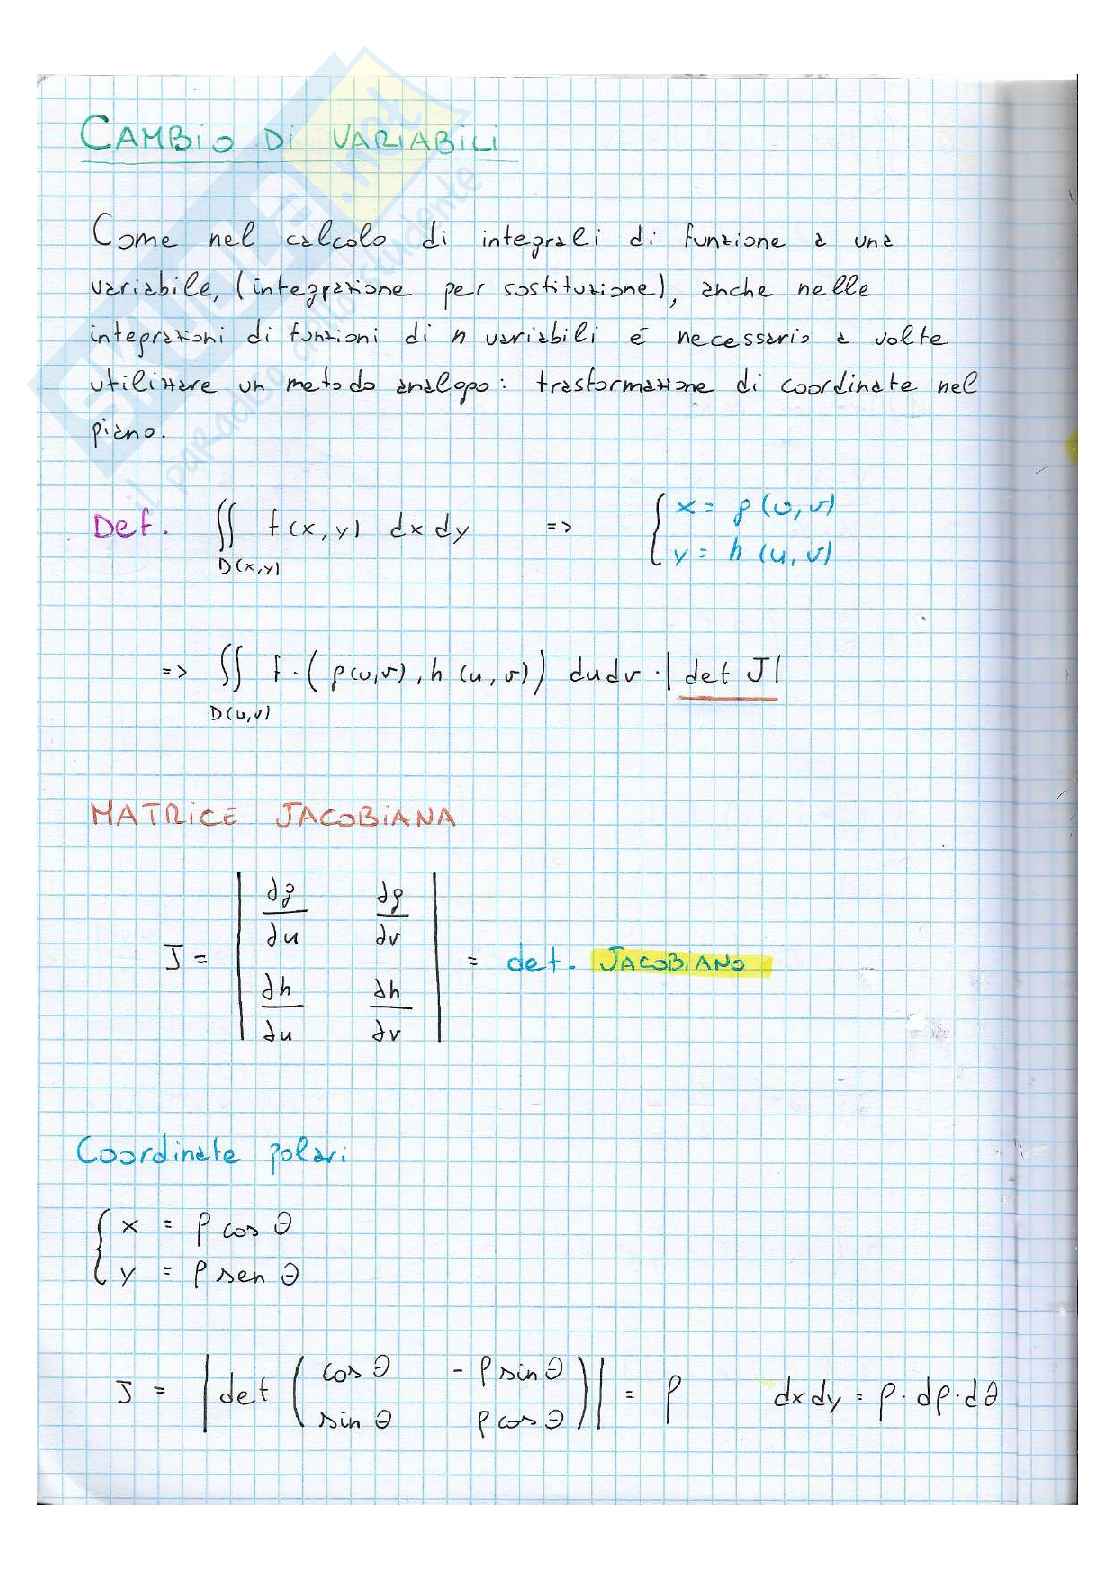 CAMBIO DI VARIABILI
Come nel calcolo di integrali di funzione a una
variabile, (integrazione per sostituzione), anche nelle
integrazioni di funzioni di n variabili è necessario a volte
utilizzare un metodo analogo: trasformazione di coordinate nel
piano.
Def. ∬ f(x,y) dx dy => { x = g(u,v)
D(x,y) y = h(u,v)
=> ∬ f·(g(u,v), h(u,v)) du dv · |det J|
D(u,v)
MATRICE JACOBIANA
J = | ∂g/∂u ∂g/∂v |
| ∂h/∂u ∂h/∂v | = det. JACOBIANO
Coordinate polari
{ x = ρ cos θ
y = ρ sen θ
J = | det ( cos θ - ρ sin θ
sin θ ρ cos θ ) | = ρ dx dy = ρ · dρ · dθ
il paradiso dello studente
.net